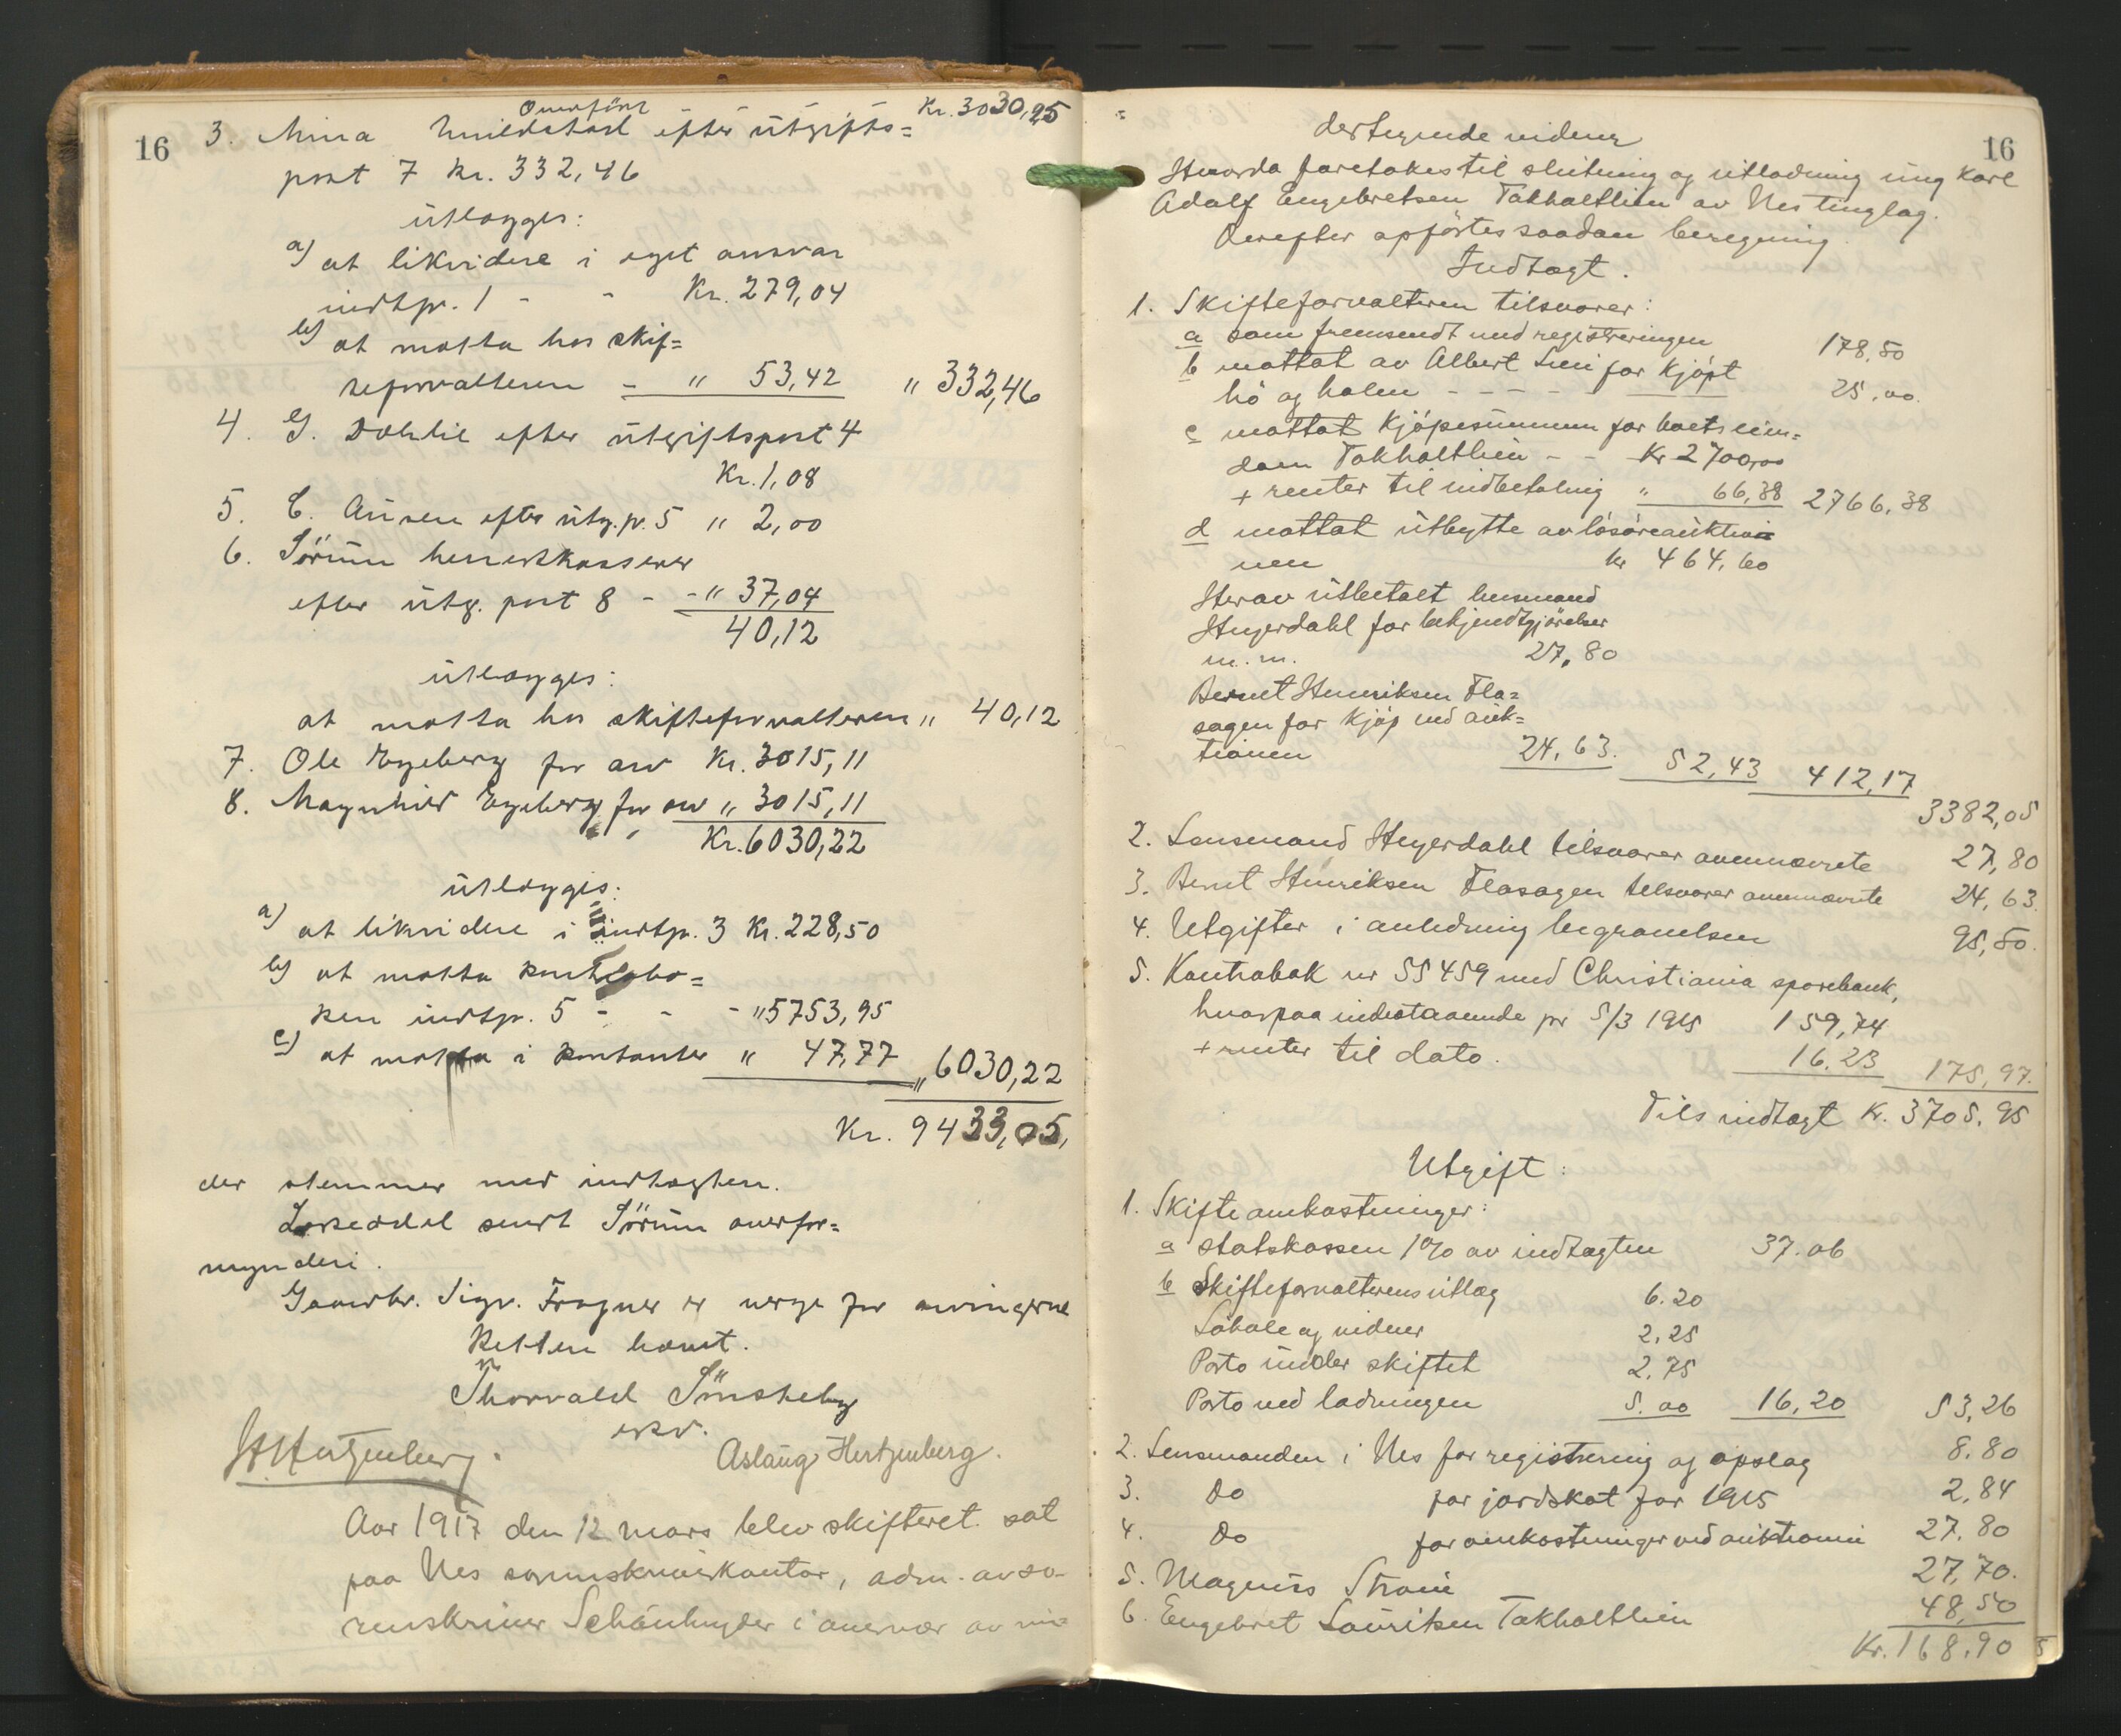 16
Overført - - - Kr. 3030,25
3. Mina efter utgifts=
post 7 Kr. 332,46
utlægges:
a) at likvidere i eget ansvar
indtp. 1 - - Kr. 279,04
b) at motta hos skif=
teforvalteren - " 53,42 " 332,46
4. G. Dæhlie efter utgiftspost 4
Kr. 1,08
5. C. efter utg.p. 5 " 2,00
6. Sörum herredskasserer
efter utg. post 8 - - " 37,04
40,12
utlægges:
at motta hos skifteforvalteren " 40,12
7. Ole Engeberg for arv Kr. 3015,11
8. Magnhild Engeberg for arv " 3015,11
Kr. 6030,22
utlægges:
a) at likvidere i indtp. 3 Kr. 228,50
b) at motta kontrabo=
ken indtp. 5 - - - " 5753,95
c) at motta i kontanter " 47,77 " 6030,22
Kr. 9433,05,
der stemmer med indtægten.
sendt Sörum overfor=
mynderi.
Gaardbr. Sigv. Frogner er verge for arvingerne
Retten hævet.
Thorvald
eskr.
Hertzenberg. Aslaug Hertzenberg.
Aar 1917 den 12 mars blev skifteret sat
paa Nes sorenskriverkontor, adm. av so-
renskriver i overvær av un=
16
dertegnede vidner
Hvorda foretokes til slutning og utlodning i ung Karl
Adolf Engebretsen Takholtlien av Nes tinglag.
Derefter opførtes saadan beregning
Indtægt.
1. Skifteforvalteren tilsvarer:
a som fremsendt med registreringen 178,50
b mottat av Albert Lini for kjøpt
hø og halm - - - - 25,00.
c mottat kjøpesummen for boets eien=
dom Takholtlien - - Kr 2700,00
+ renter til indbetaling " 66,38 2766,38
d mottat utbytte av løsøreauktio
nen kr 464,60
Herav utbetalt lensmand
Heyerdahl for bekjendtgjørelser
m.m. 27,80
Bernt Henriksen Fla=
sagen for kjøp ved auk=
tionen 24,63. 52,43 412,17
3382,05
2. Lensmand Heyerdahl tilsvarer ovennævnte 27,80
3. Bernt Henriksen Flasagen tilsvarer ovennævnte 24,63.
4. Utgifter i anledning begravelsen 95,50.
5. Kontrabok nr 55459 med Christiania sparebank,
hvorpaa indestaaende pr 5/3 1915 159,74
+ renter til dato. 16.23 175,97.
Tils indtægt Kr. 3705.95
Utgift:
1. Skifteomkostninger:
a statskassen 1% av indtægten 37.06
b Skifteforvalterens utlæg 6.20
Lokale og vidner 2,25
Porto under skiftet 2,75
Porto ved lodningen 5.00 16,20 53,26
2. Lensmanden i Nes for registrering og opslag 8.80
3. Do for jordskat for 1915 2,84
4. Do for omkostninger ved auktionen 27.80
5. Magnus 27,70.
6. Engebret Lauritsen Takholtlien 48,50
Kr. 168.90